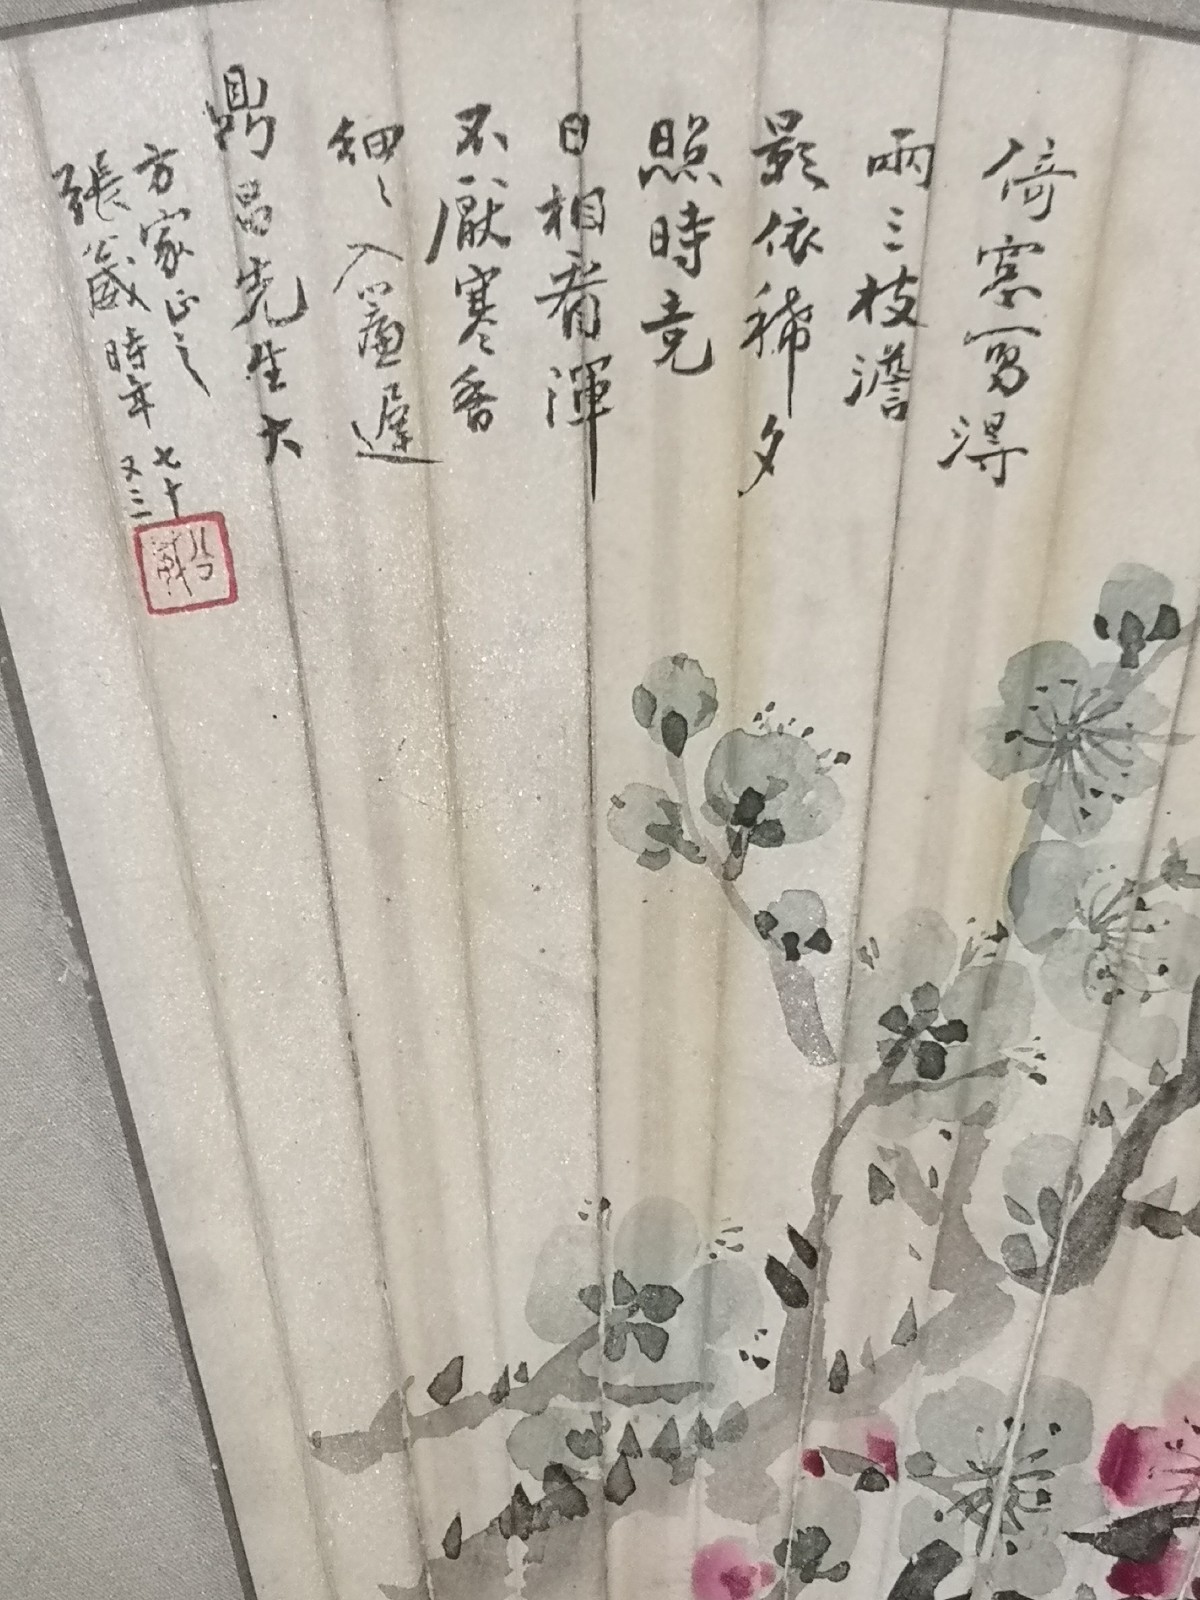 倚窓寫得
兩三枝澹
影依稀夕
照時竟
日相看渾
不厭寒香
細〻入簾遲
鼎昌先生大
方家正之
張葳時年七十又三